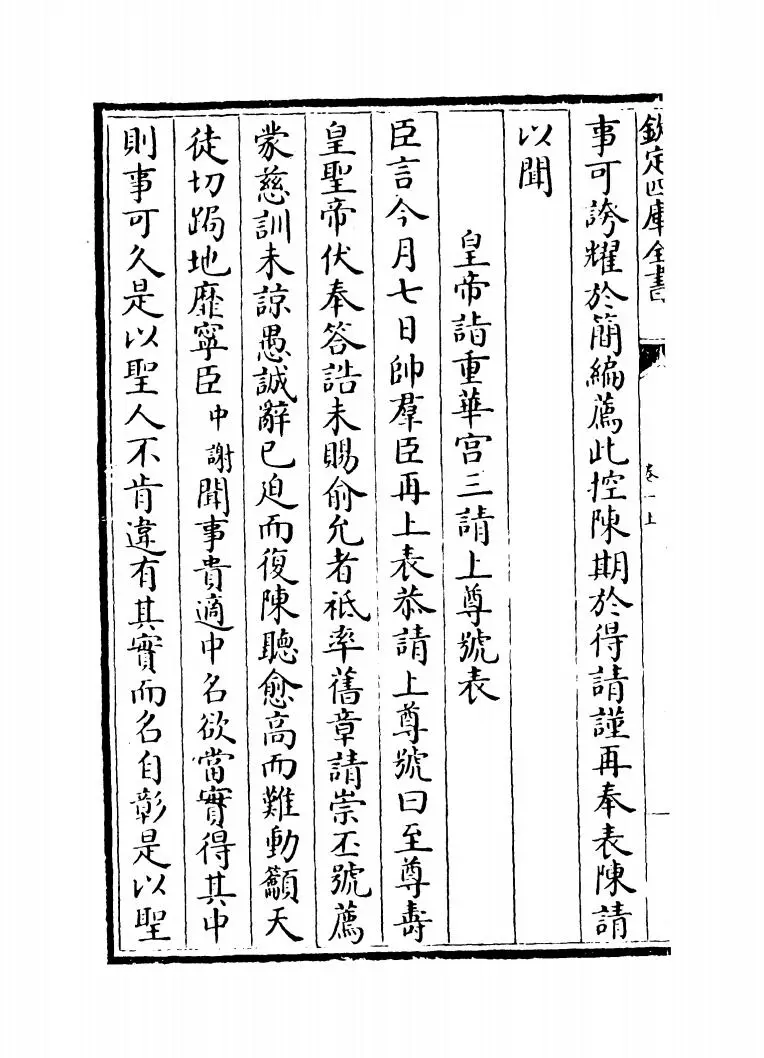 欽定四庫全書
卷一上
事可誇耀於簡編薦此控陳期於得請謹再奉表陳請
以聞
皇帝詣重華宫三請上尊號表
臣言今月七日帥羣臣再上表恭請上尊號曰至尊壽
皇聖帝伏奉答誥未賜俞允者祗率舊章請崇丕號薦
蒙慈訓未諒愚誠辭已迫而復陳聽愈高而難動籲天
徒切跼地靡寧臣中謝聞事貴適中名欲當實得其中
則事可久是以聖人不肯違有其實而名自彰是以聖